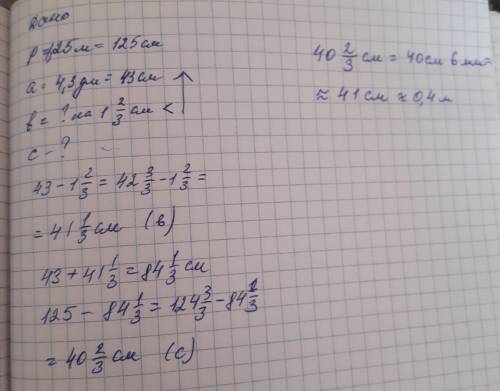 Дано
P = 1,25м = 125см
a = 4,3дм = 43см
в = ? на 1 2/3 см <
c - ?
43 - 1 2/3 = 42 3/3 - 1 2/3 =
= 41 1/3 см (в)
43 + 41 1/3 = 84 1/3 см
125 - 84 1/3 = 124 3/3 - 84 1/3
= 40 2/3 см (c)
40 2/3 см = 40см 6 мм =
≈ 41 см ≈ 0,4 м